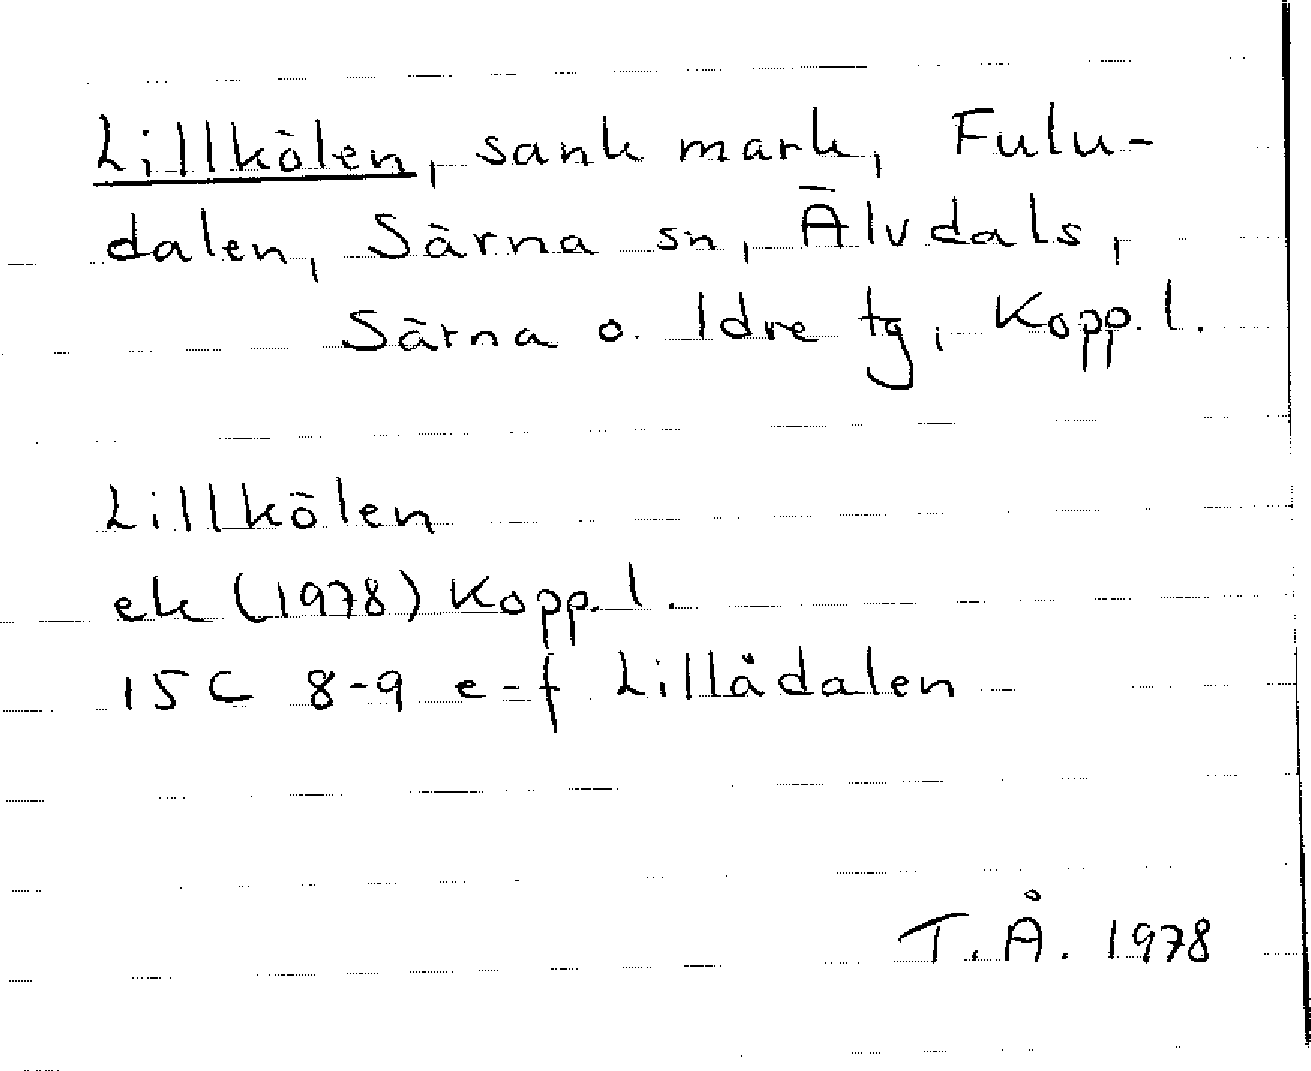 Lillkölen, sank mark, Fulu-
dalen, Särna sn, Älvdals,
Särna o. Idre tg, Kopp. l.
Lillkölen
ek (1978) Kopp. l.
15 C 8-9 e-f Lillådalen
T. Å. 1978